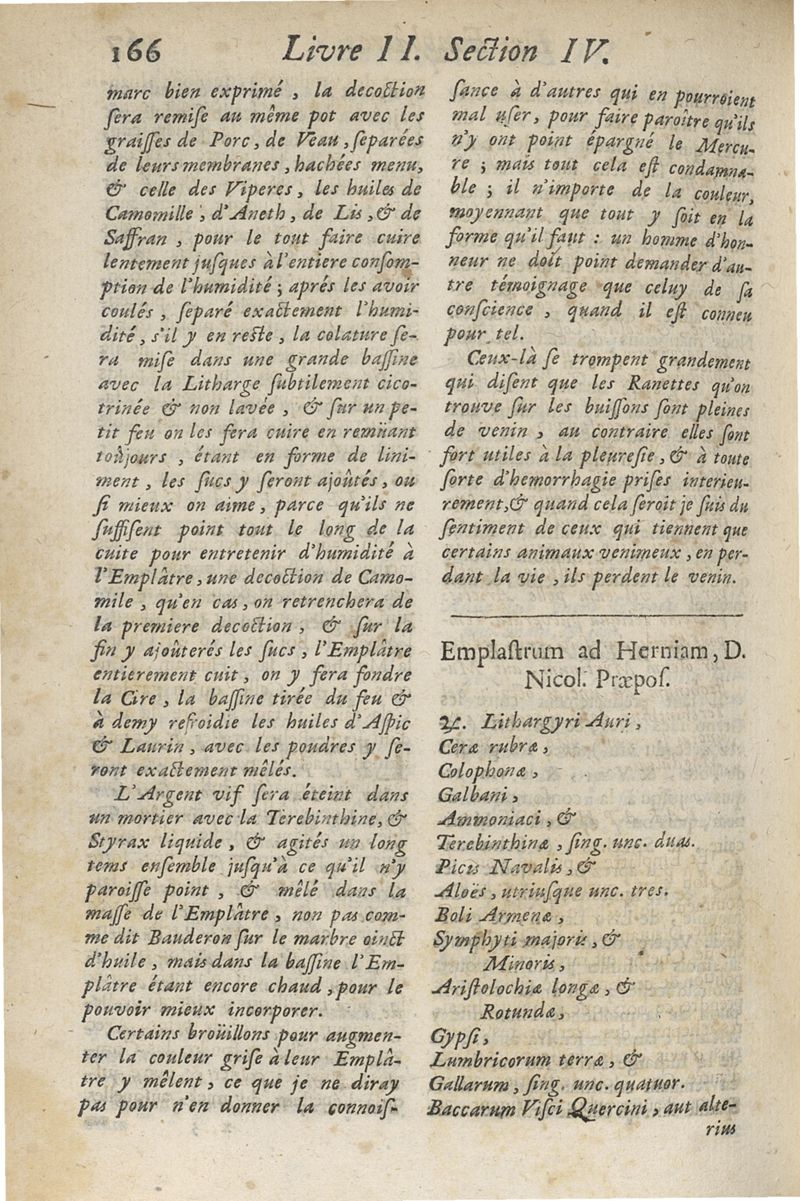 166 Livre II. Section IV.
marc bien exprimé, la decoction
ſera remiſe au même pot avec les
graiſſes de Porc, de Veau, ſeparées
de leurs membranes, hachées menu,
& celle des Viperes, les huiles de
Camomille, d'Aneth, de Lis, & de
Saffran, pour le tout faire cuire
lentement juſques à l'entiere conſom-
ption de l'humidité; aprés les avoir
coulés, ſeparé exactement l'humi-
dité, s'il y en reſte, la colature ſe-
ra miſe dans une grande baſſine
avec la Litharge ſubtilement cico-
trinée & non lavée, & ſur un pe-
tit feu on les fera cuire en remüant
toûjours, étant en forme de lini-
ment, les ſucs y ſeront ajoûtés, ou
ſi mieux on aime, parce qu'ils ne
ſuffiſent point tout le long de la
cuite pour entretenir d'humidité à
l'Emplâtre, une decoction de Camo-
mile, qu'en cas, on retrenchera de
la premiere decoction, & ſur la
fin y ajoûterés les ſucs, l'Emplâtre
entierement cuit, on y fera fondre
la Cire, la baſſine tirée du feu &
à demy refroidie les huiles d'Aſpic
& Laurin, avec les poudres y ſe-
ront exactement mêlés.
L'Argent vif ſera éteint dans
un mortier avec la Terebinthine, &
Styrax liquide, & agités un long
tems enſemble juſqu'à ce qu'il n'y
paroiſſe point, & mêlé dans la
maſſe de l'Emplâtre, non pas com-
me dit Bauderon ſur le marbre oinct
d'huile, mais dans la baſſine l'Em-
plâtre étant encore chaud, pour le
pouvoir mieux incorporer.
Certains broüillons pour augmen-
ter la couleur griſe à leur Emplâ-
tre y mêlent, ce que je ne diray
pas pour n'en donner la connoiſ-
ſance à d'autres qui en pourroient
mal uſer, pour faire paroître qu'ils
n'y ont point épargné le Mercu-
re; mais tout cela eſt condamna-
ble; il n'importe de la couleur,
moyennant que tout y ſoit en la
forme qu'il faut: un homme d'hon-
neur ne doit point demander d'au-
tre témoignage que celuy de ſa
conſcience, quand il eſt conneu
pour tel.
Ceux-là ſe trompent grandement
qui diſent que les Ranettes qu'on
trouve ſur les buiſſons ſont pleines
de venin, au contraire elles ſont
fort utiles à la pleureſie, & à toute
ſorte d'hemorrhagie priſes interieu-
rement, & quand cela ſeroit je ſuis du
ſentiment de ceux qui tiennent que
certains animaux venimeux, en per-
dant la vie, ils perdent le venin.
Emplaſtrum ad Herniam, D.
Nicol. Præpoſ.
♃. Lithargyri Auri,
Ceræ rubræ,
Colophonæ,
Galbani,
Ammoniaci, &
Terebinthinæ, ſing. unc. duas.
Picis Navalis, &
Aloës, utriuſque unc. tres.
Boli Armenæ,
Symphyti majoris, &
Minoris,
Ariſtolochiæ longæ, &
Rotundæ,
Gypſi,
Lumbricorum terræ, &
Gallarum, ſing. unc. quatuor.
Baccarum Viſci Quercini, aut alte-
rius